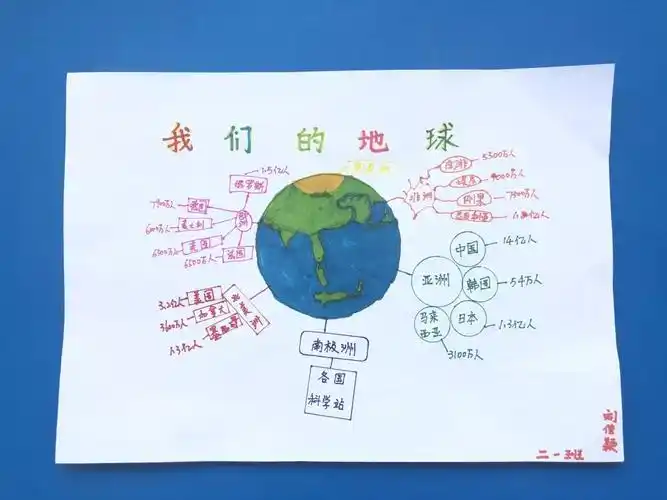 我们的地球
欧洲
俄罗斯
1.5亿人
德国
7900万人
意大利
6000万人
英国
6300万人
法国
6500万人
非洲
南非
5300万人
埃及
刚果
7900万人
亚洲
中国
14亿人
韩国
54万人
日本
1.3亿人
马来西亚
3100万人
北美洲
美国
3.2亿人
加拿大
3600万人
墨西哥
1.3亿人
南极洲
各国
科学站
二一班